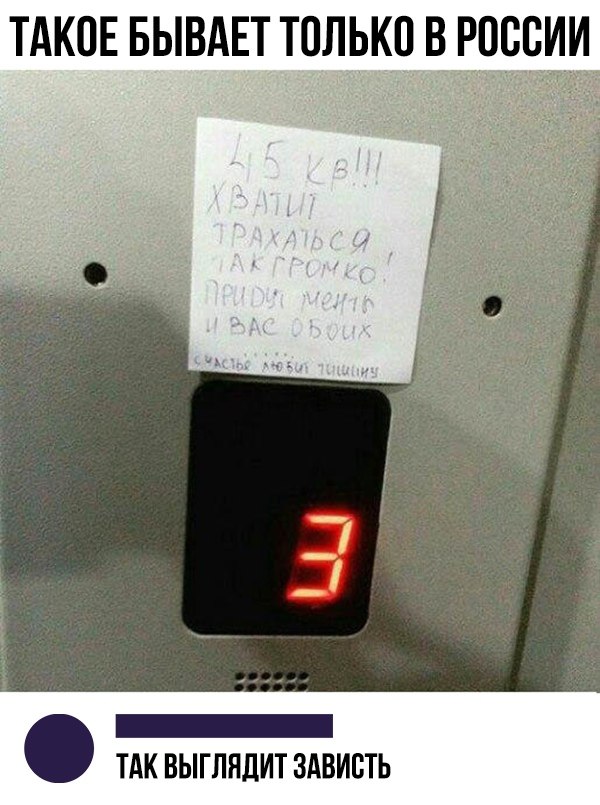 ТАКОЕ БЫВАЕТ ТОЛЬКО В РОССИИ
45 КВ!!!
ХВАТИТ
ТРАХАТЬСЯ
ТАК ГРОМКО!
ПРИДУТ МЕНТЫ
И ВАС ОБОИХ
......
СЧАСТЬЕ ЛЮБИТ ТИШИНУ
3
ТАК ВЫГЛЯДИТ ЗАВИСТЬ